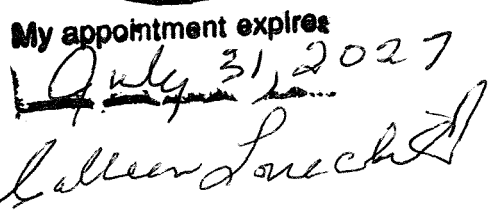 My appointment expires
July 31, 2027
Colleen